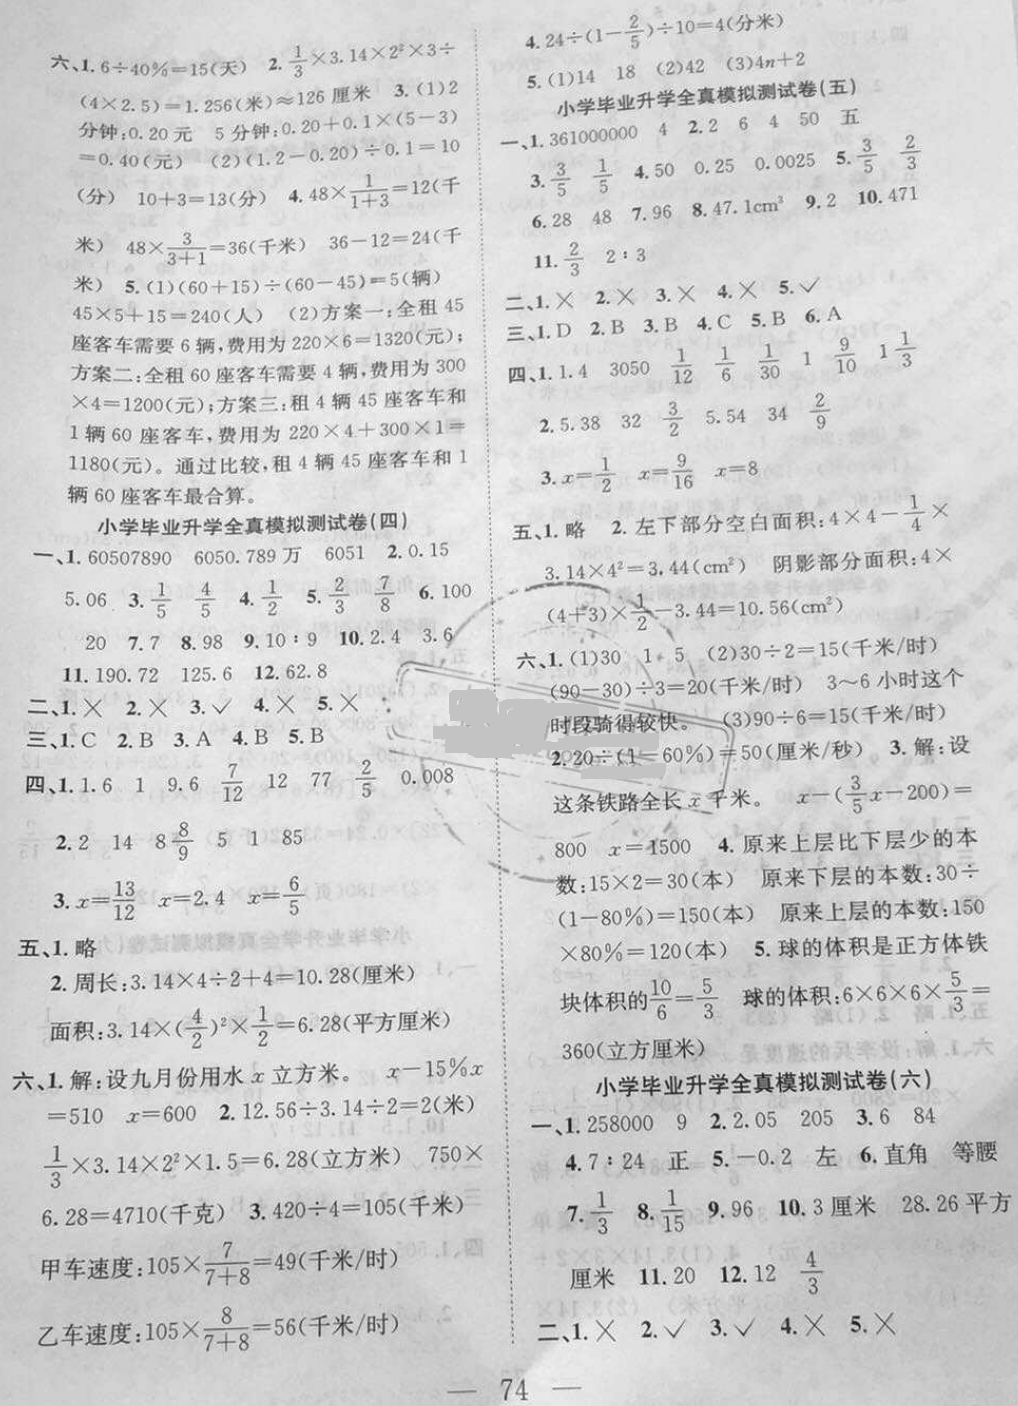 六、1. 6÷40%=15(天) 2. 1/3×3.14×2²×3÷
(4×2.5)=1.256(米)≈126 厘米 3. (1)2
分钟:0.20 元 5 分钟:0.20+0.1×(5-3)
=0.40(元) (2)(1.2-0.20)÷0.1=10
(分) 10+3=13(分) 4. 48×1/(1+3)=12(千
米) 48×3/(3+1)=36(千米) 36-12=24(千
米) 5. (1)(60+15)÷(60-45)=5(辆)
45×5+15=240(人) (2)方案一:全租 45
座客车需要 6 辆,费用为 220×6=1320(元);
方案二:全租 60 座客车需要 4 辆,费用为 300
×4=1200(元);方案三:租 4 辆 45 座客车和
1 辆 60 座客车,费用为 220×4+300×1=
1180(元)。通过比较,租 4 辆 45 座客车和 1
辆 60 座客车最合算。
小学毕业升学全真模拟测试卷(四)
一、1. 60507890 6050.789 万 6051 2. 0.15
5.06 3. 1/5 4/5 4. 1/2 5. 2/3 7/8 6. 100
20 7. 7 8. 98 9. 10∶9 10. 2.4 3.6
11. 190.72 125.6 12. 62.8
二、1. × 2. × 3. √ 4. × 5. ×
三、1. C 2. B 3. A 4. B 5. B
四、1. 1.6 1 9.6 7/12 12 77 2/5 0.008
2. 2 14 8 8/9 5 1 85
3. x=13/12 x=2.4 x=6/5
五、1. 略
2. 周长:3.14×4÷2+4=10.28(厘米)
面积:3.14×(4/2)²×1/2=6.28(平方厘米)
六、1. 解:设九月份用水 x 立方米。 x-15%x
=510 x=600 2. 12.56÷3.14÷2=2(米)
1/3×3.14×2²×1.5=6.28(立方米) 750×
6.28=4710(千克) 3. 420÷4=105(千米)
甲车速度:105×7/(7+8)=49(千米/时)
乙车速度:105×8/(7+8)=56(千米/时)
4. 24÷(1-2/5)÷10=4(分米)
5. (1)14 18 (2)42 (3)4n+2
小学毕业升学全真模拟测试卷(五)
一、1. 361000000 4 2. 2 6 4 50 五
3. 3/5 1/5 4. 50 0.25 0.0025 5. 3/5 2/3
6. 28 48 7. 96 8. 47.1cm³ 9. 2 10. 471
11. 2/3 2∶3
二、1. × 2. × 3. × 4. × 5. √
三、1. D 2. B 3. B 4. C 5. B 6. A
四、1. 1.4 3050 1/12 1/6 1/30 1 9/10 1 1/3
2. 5.38 32 3/2 5.54 34 2/9
3. x=1/2 x=9/16 x=8
五、1. 略 2. 左下部分空白面积:4×4-1/4×
3.14×4²=3.44(cm²) 阴影部分面积:4×
(4+3)×1/2-3.44=10.56(cm²)
六、1. (1)30 1 5 (2)30÷2=15(千米/时)
(90-30)÷3=20(千米/时) 3~6 小时这个
时段骑得较快。 (3)90÷6=15(千米/时)
2. 20÷(1-60%)=50(厘米/秒) 3. 解:设
这条铁路全长 x 千米。 x-(3/5x-200)=
800 x=1500 4. 原来上层比下层少的本
数:15×2=30(本) 原来下层的本数:30÷
(1-80%)=150(本) 原来上层的本数:150
×80%=120(本) 5. 球的体积是正方体铁
块体积的10/6=5/3 球的体积:6×6×6×5/3=
360(立方厘米)
小学毕业升学全真模拟测试卷(六)
一、1. 258000 9 2. 2.05 205 3. 6 84
4. 7∶24 正 5. -0.2 左 6. 直角 等腰
7. 1/3 8. 1/15 9. 96 10. 3 厘米 28.26 平方
厘米 11. 20 12. 12 4/3
二、1. × 2. √ 3. √ 4. × 5. ×
— 74 —